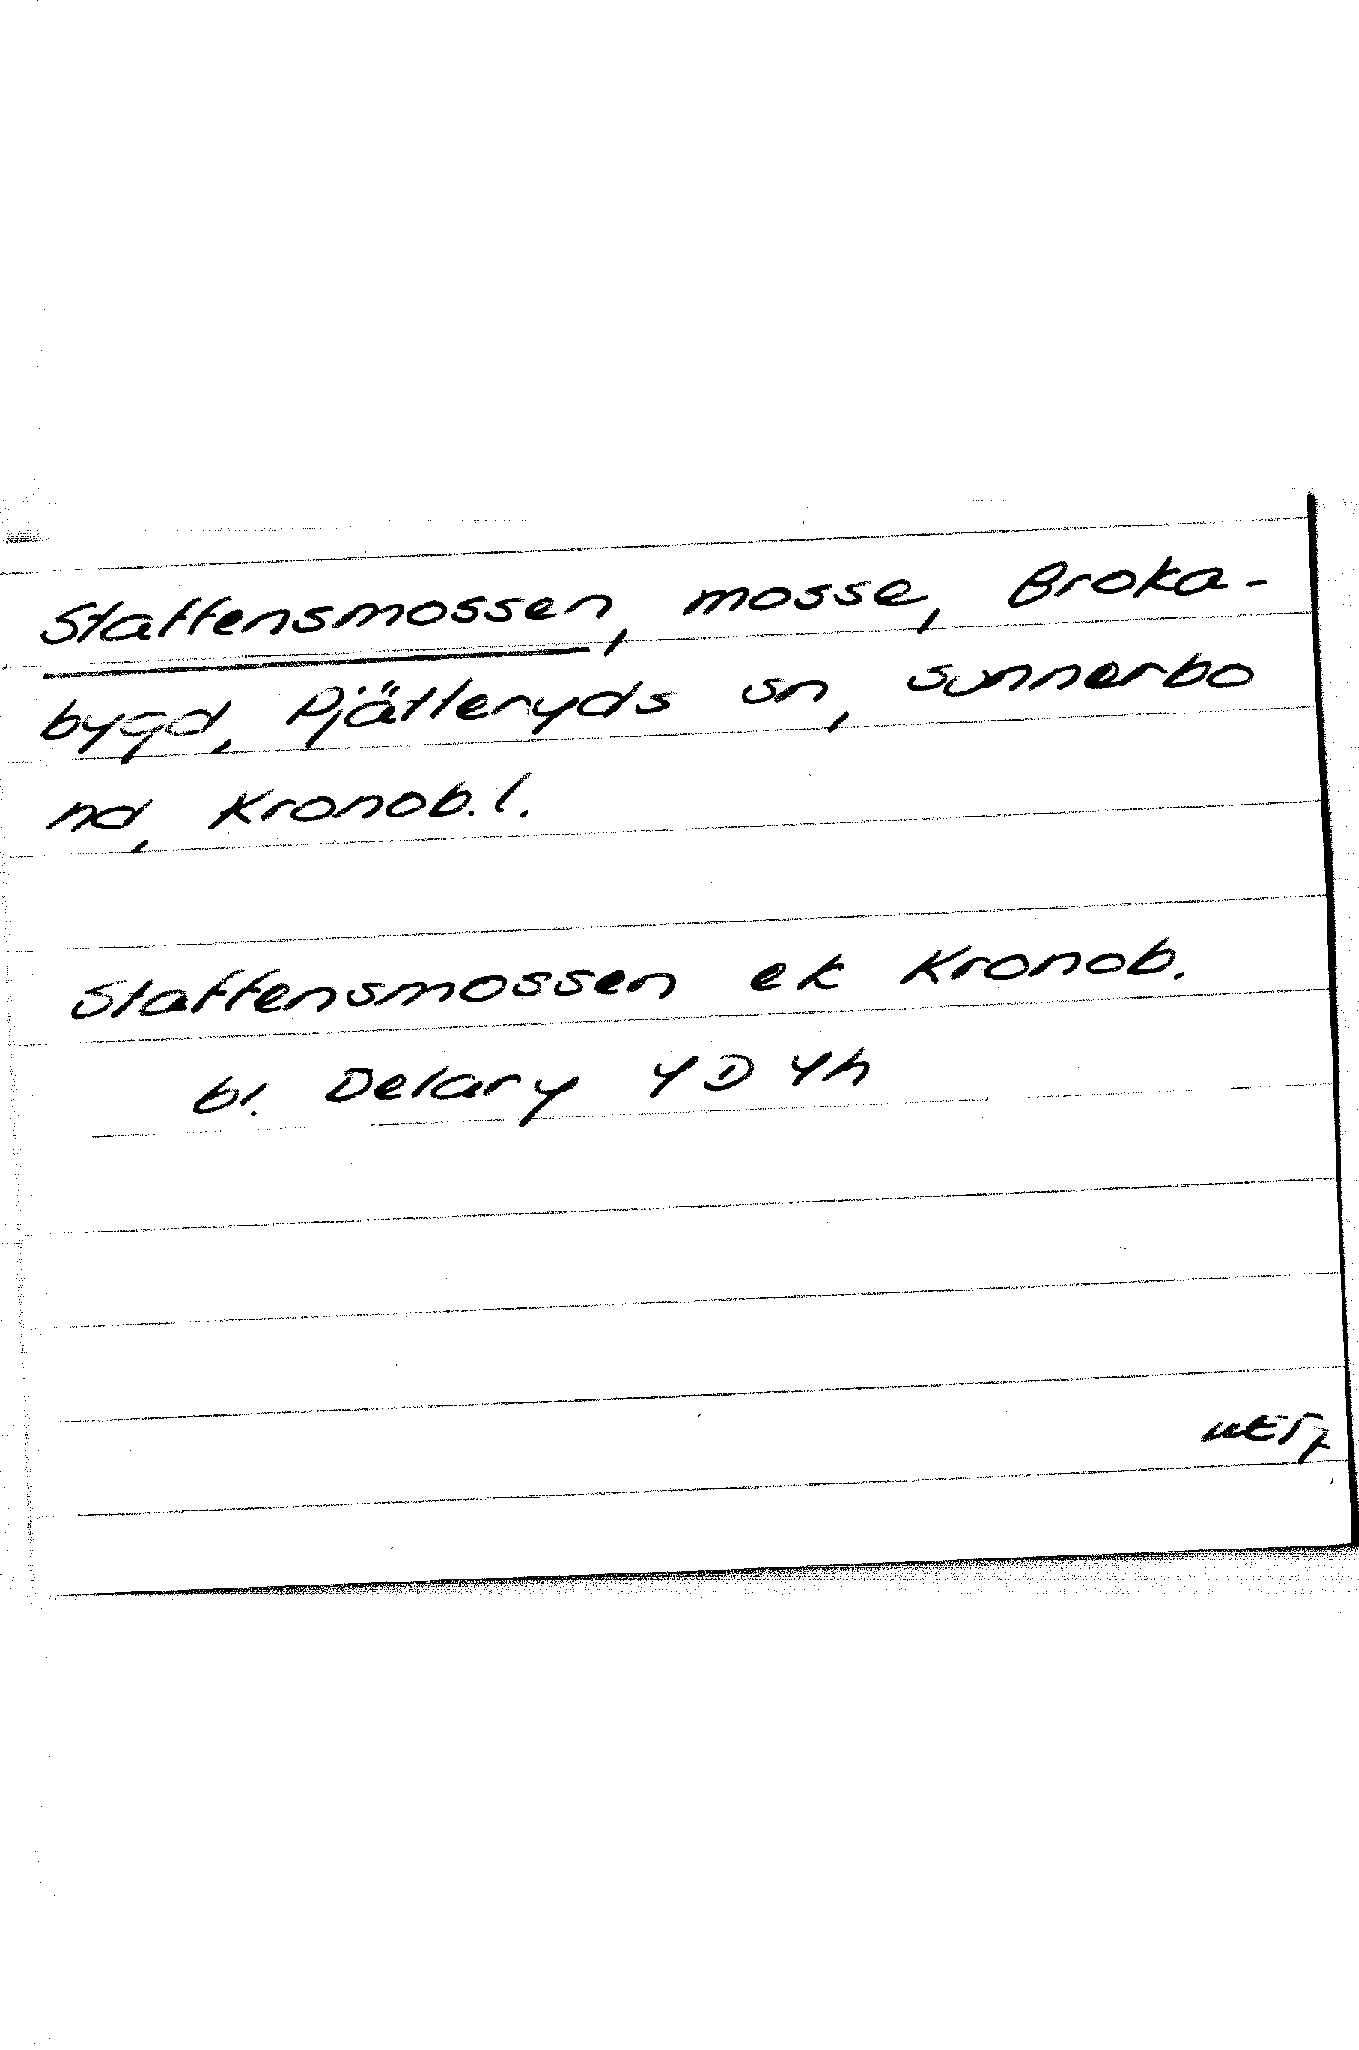 Staffensmossen, mosse, Broka-
bygd, Pjätteryds sn, Sunnerbo
hd, Kronob. l.
Staffensmossen ek Kronob.
bl. Delary 4D 4h